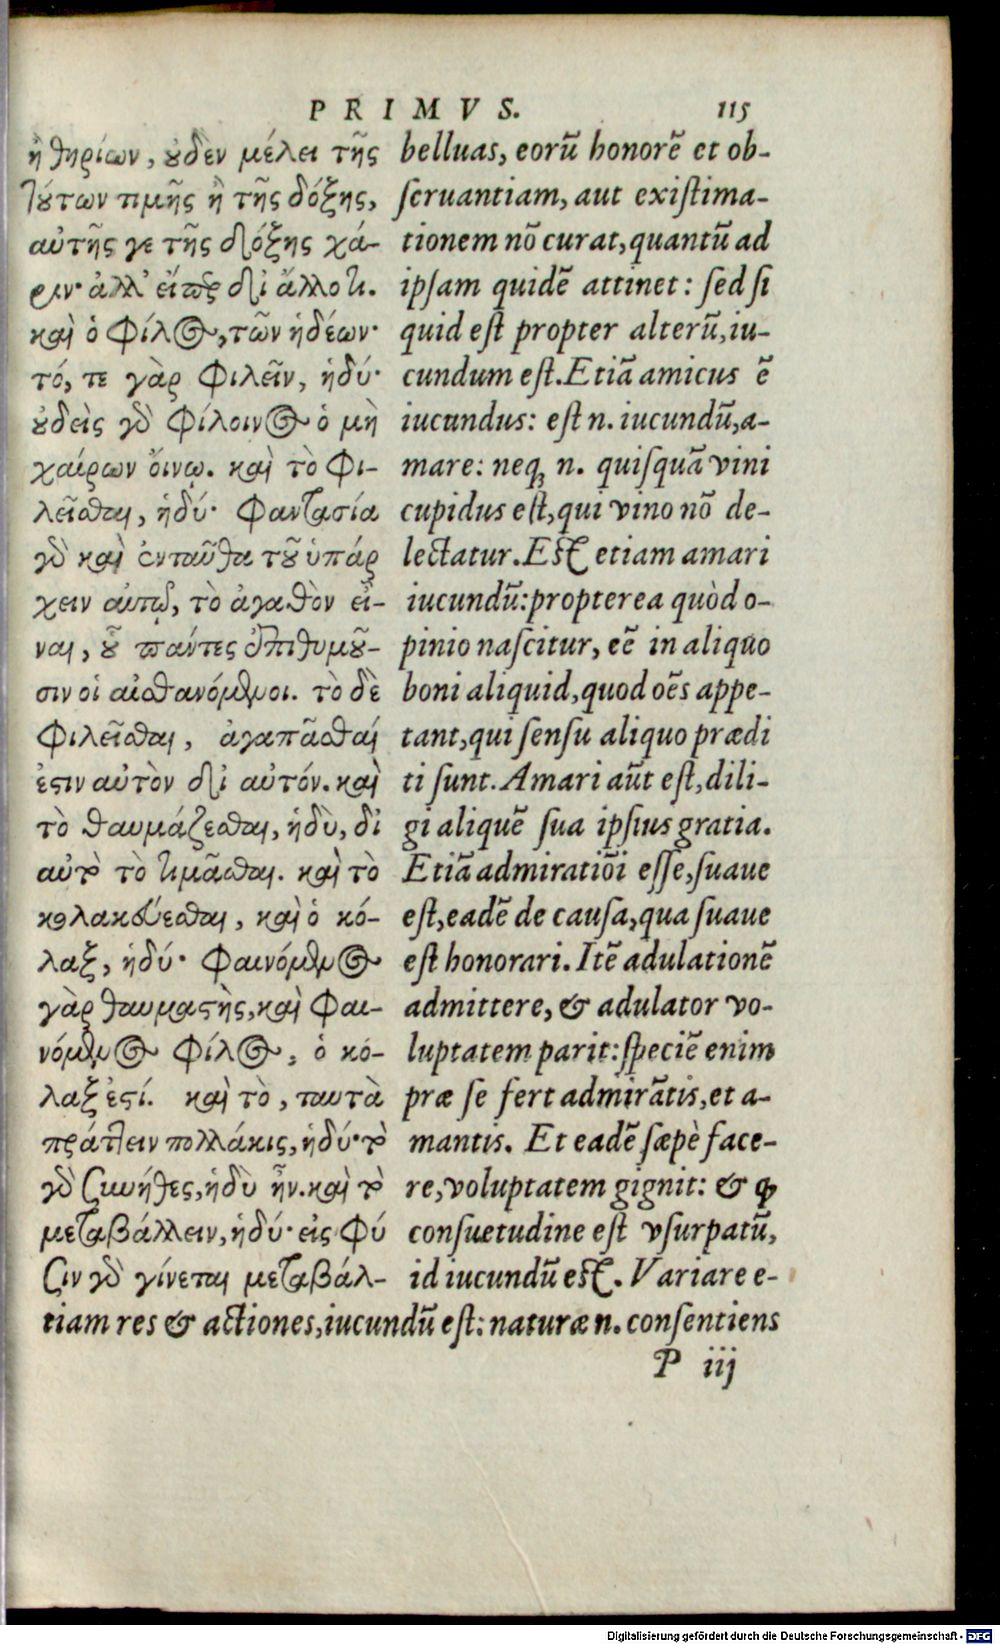 PRIMVS. 115
ἢ θηρίων, οὐδὲν μέλει τῆς
τούτων τιμῆς ἢ τῆς δόξης,
αὐτῆς γε τῆς δόξης χά-
ριν· ἀλλ' εἴπερ δι' ἄλλο τι.
καὶ ὁ φίλος, τῶν ἡδέων·
τό, τε γὰρ φιλεῖν, ἡδύ·
οὐδεὶς γὰρ φίλοινος ὁ μὴ
χαίρων οἴνῳ. καὶ τὸ φι-
λεῖσθαι, ἡδύ· φαντασία
γὰρ καὶ ἐνταῦθα τοῦ ὑπάρ
χειν αὐτῷ, τὸ ἀγαθὸν εἶ-
ναι, οὗ πάντες ἐπιθυμοῦ-
σιν οἱ αἰσθανόμενοι. τὸ δὲ
φιλεῖσθαι, ἀγαπᾶσθαί
ἐστιν αὐτὸν δι' αὐτόν. καὶ
τὸ θαυμάζεσθαι, ἡδὺ, δι'
αὐτὸ τὸ τιμᾶσθαι. καὶ τὸ
κολακεύεσθαι, καὶ ὁ κό-
λαξ, ἡδύ· φαινόμενος
γὰρ θαυμαστὴς, καὶ φαι-
νόμενος φίλος, ὁ κό-
λαξ ἐστί. καὶ τὸ, ταυτὰ
πράττειν πολλάκις, ἡδύ· τὸ
γὰρ συνήθες, ἡδὺ ἦν. καὶ τὸ
μεταβάλλειν, ἡδύ· εἰς φύ
σιν γὰρ γίνεται μεταβάλ-
belluas, eorū honorē et ob-
seruantiam, aut existima-
tionem nō curat, quantū ad
ipsam quidē attinet: sed si
quid est propter alterū, iu-
cundum est. Etiā amicus ē
iucundus: est n. iucundū, a-
mare: neq; n. quisquā vini
cupidus est, qui vino nō de-
lectatur. Est etiam amari
iucundū: propterea quòd o-
pinio nascitur, eē in aliquo
boni aliquid, quod oēs appe-
tant, qui sensu aliquo prædi
ti sunt. Amari aūt est, dili-
gi aliquē sua ipsius gratia.
Etiā admirationi esse, suaue
est, eadē de causa, qua suaue
est honorari. Itē adulationē
admittere, & adulator vo-
luptatem parit: speciē enim
præ se fert admirātis, et a-
mantis. Et eadē sæpè face-
re, voluptatem gignit: & ꝙ
consuetudine est vsurpatū,
id iucundū est. Variare e-
tiam res & actiones, iucundū est: naturæ n. consentiens
P iij
Digitalisierung gefördert durch die Deutsche Forschungsgemeinschaft - DFG